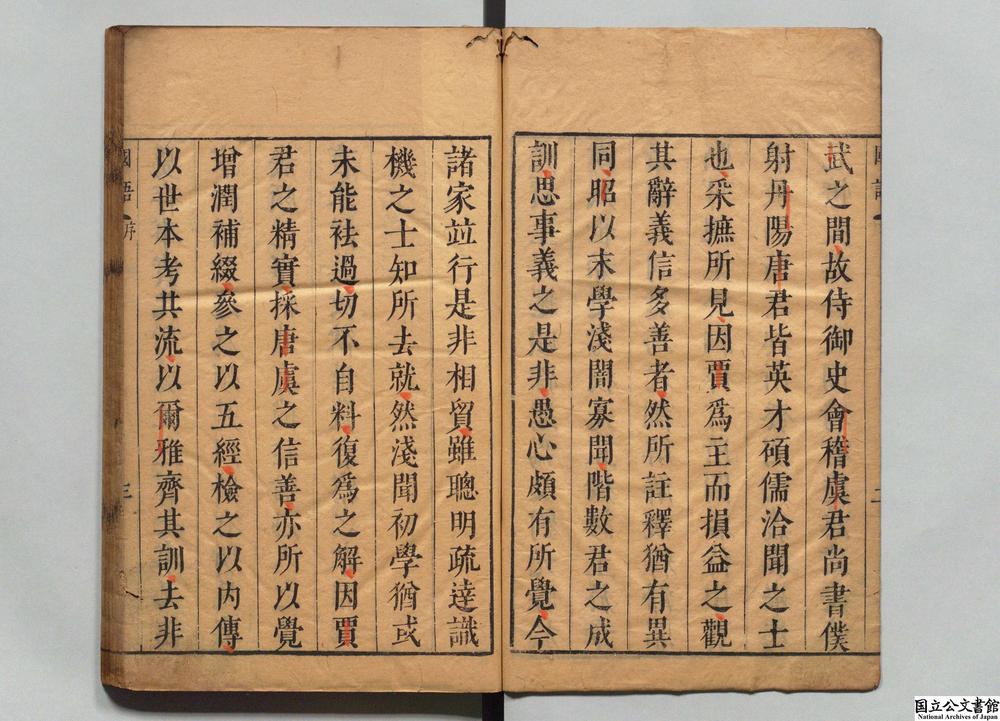 武之間故侍御史會稽虞君尚書僕
射丹陽唐君皆英才碩儒洽聞之士
也采摭所見因賈爲主而損益之觀
其辭義信多善者然所註釋猶有異
同昭以末學淺闇寡聞階數君之成
訓思事義之是非愚心頗有所覺今
諸家竝行是非相貿雖聰明疏達識
機之士知所去就然淺聞初學猶或
未能祛過切不自料復爲之解因賈
君之精實採唐虞之信善亦所以覺
增潤補綴參之以五經檢之以内傳
以世本考其流以爾雅齊其訓去非
國語 序
三
国立公文書館
National Archives of Japan